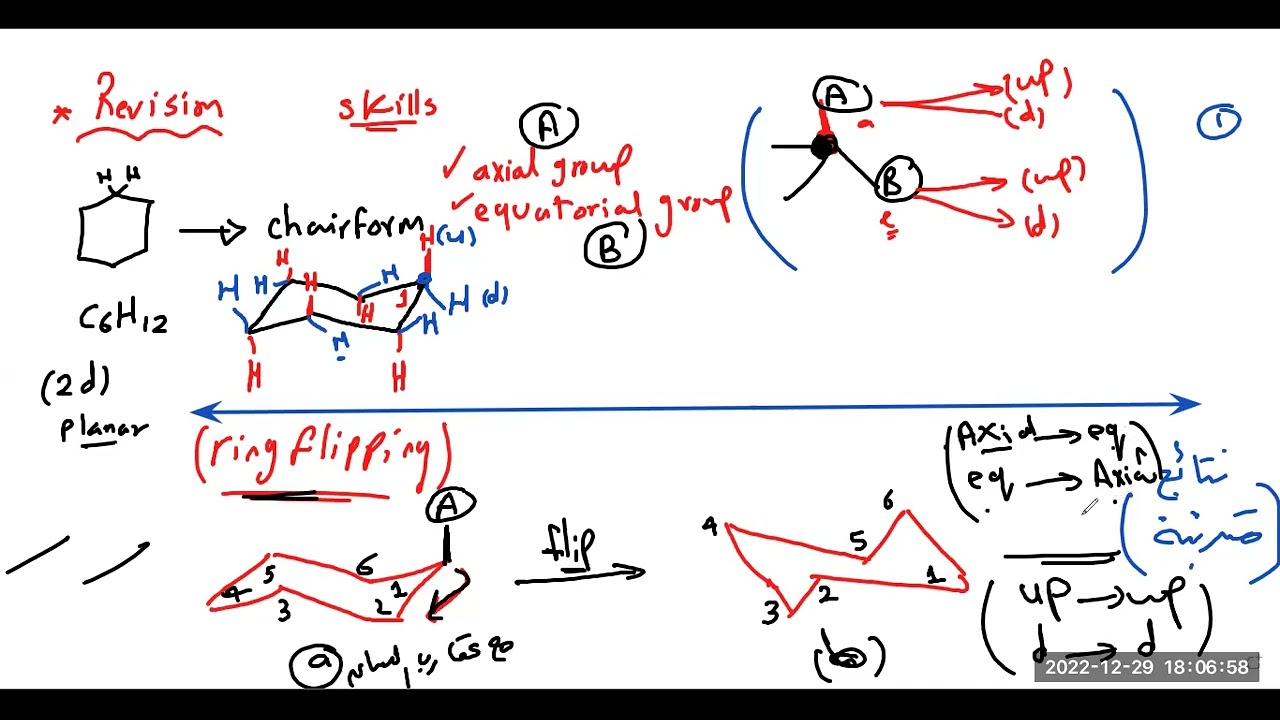 * Revision skills
A
✓ axial group
✓ equatorial group
B
A a (up) (d)
B e (up) (d)
1
H H
chairform
C6H12
(2d)
planar
H (u)
H H H H 1 H H (d)
H H
H H
(ring flipping)
A
5 6 1
4 3 2
a
flip
6
4 5 1
3 2
(b)
(Axial → eq)
eq → Axial
نتائج
(مترتبة)
(up → up)
d → d
2022-12-29 18:06:58